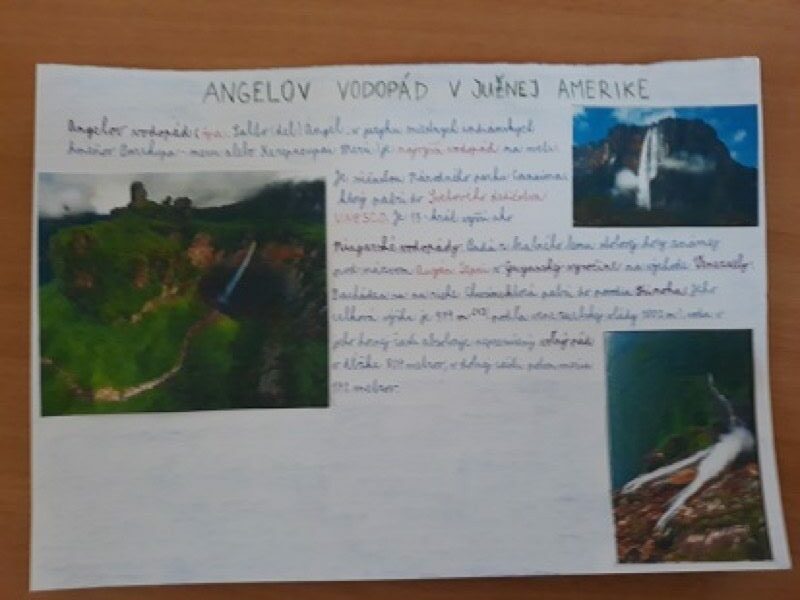 ANGELOV VODOPÁD V JUŽNEJ AMERIKE
Angelov vodopád (špa. Salto (del) Ángel, v jazyku miestnych indiánskych
kmeňov meru alebo Kerepacupai Merú) je najvyšší vodopád na svete.
Je súčasťou Národného parku Canaima,
ktorý patrí do Svetového dedičstva
UNESCO. Je 15-krát vyšší ako
Niagarské vodopády. Padá z lomu stolovej hory známej
pod názvom v Guyanskej vysočine na východe Venezuely.
Nachádza sa na rieke ktorá patrí do povodia Jeho
celková výška je 979 m podľa venezuelskej vlády m) voda v
jeho hornej časti absolvuje nepretržitý voľný pád
o dĺžke 807 metrov, v dolnej časti potom meria
172 metrov.